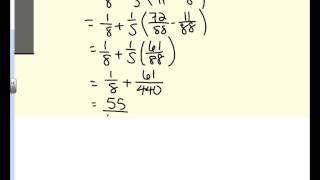 = 1/8 + 1/5 (72/88 - 11/88)
= 1/8 + 1/5 (61/88)
= 1/8 + 61/440
= 55